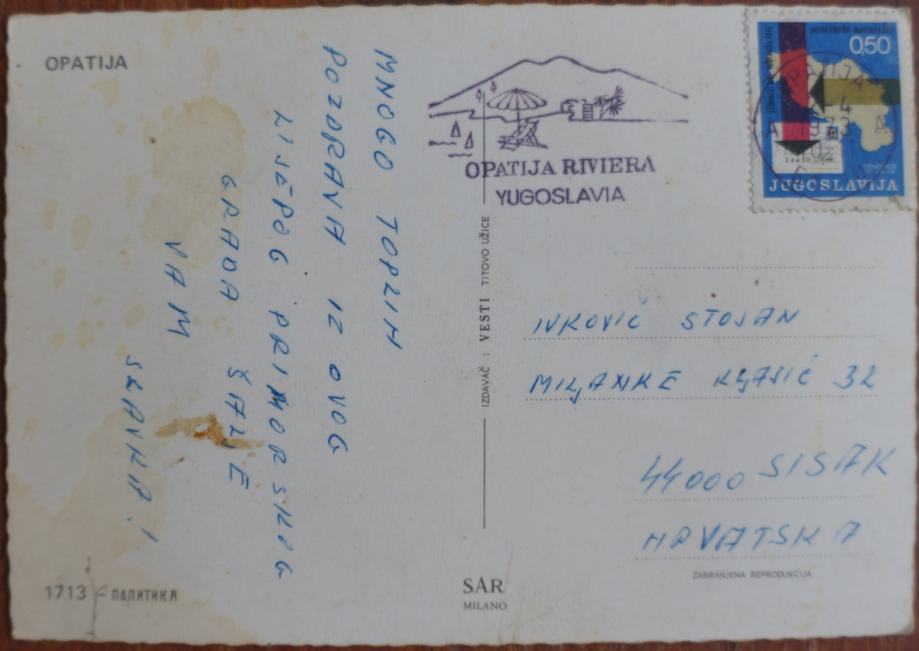 OPATIJA
MNOGO TOPLIH
POZDRAVA IZ OVOG
LIJEPOG PRIMORSKOG
GRADA ŠALJE
VAM
SLAVKA!
1713 - ПОЛИТИКА
OPATIJA RIVIERA
YUGOSLAVIA
0,50
OPATIJA
1973
JUGOSLAVIJA
IZDAVAČ: VESTI TITOVO UŽICE
IVKOVIĆ STOJAN
MILJANKE KLJAJIĆ 32
44000 SISAK
HRVATSKA
ZABRANJENA REPRODUKCIJA
SAR
MILANO